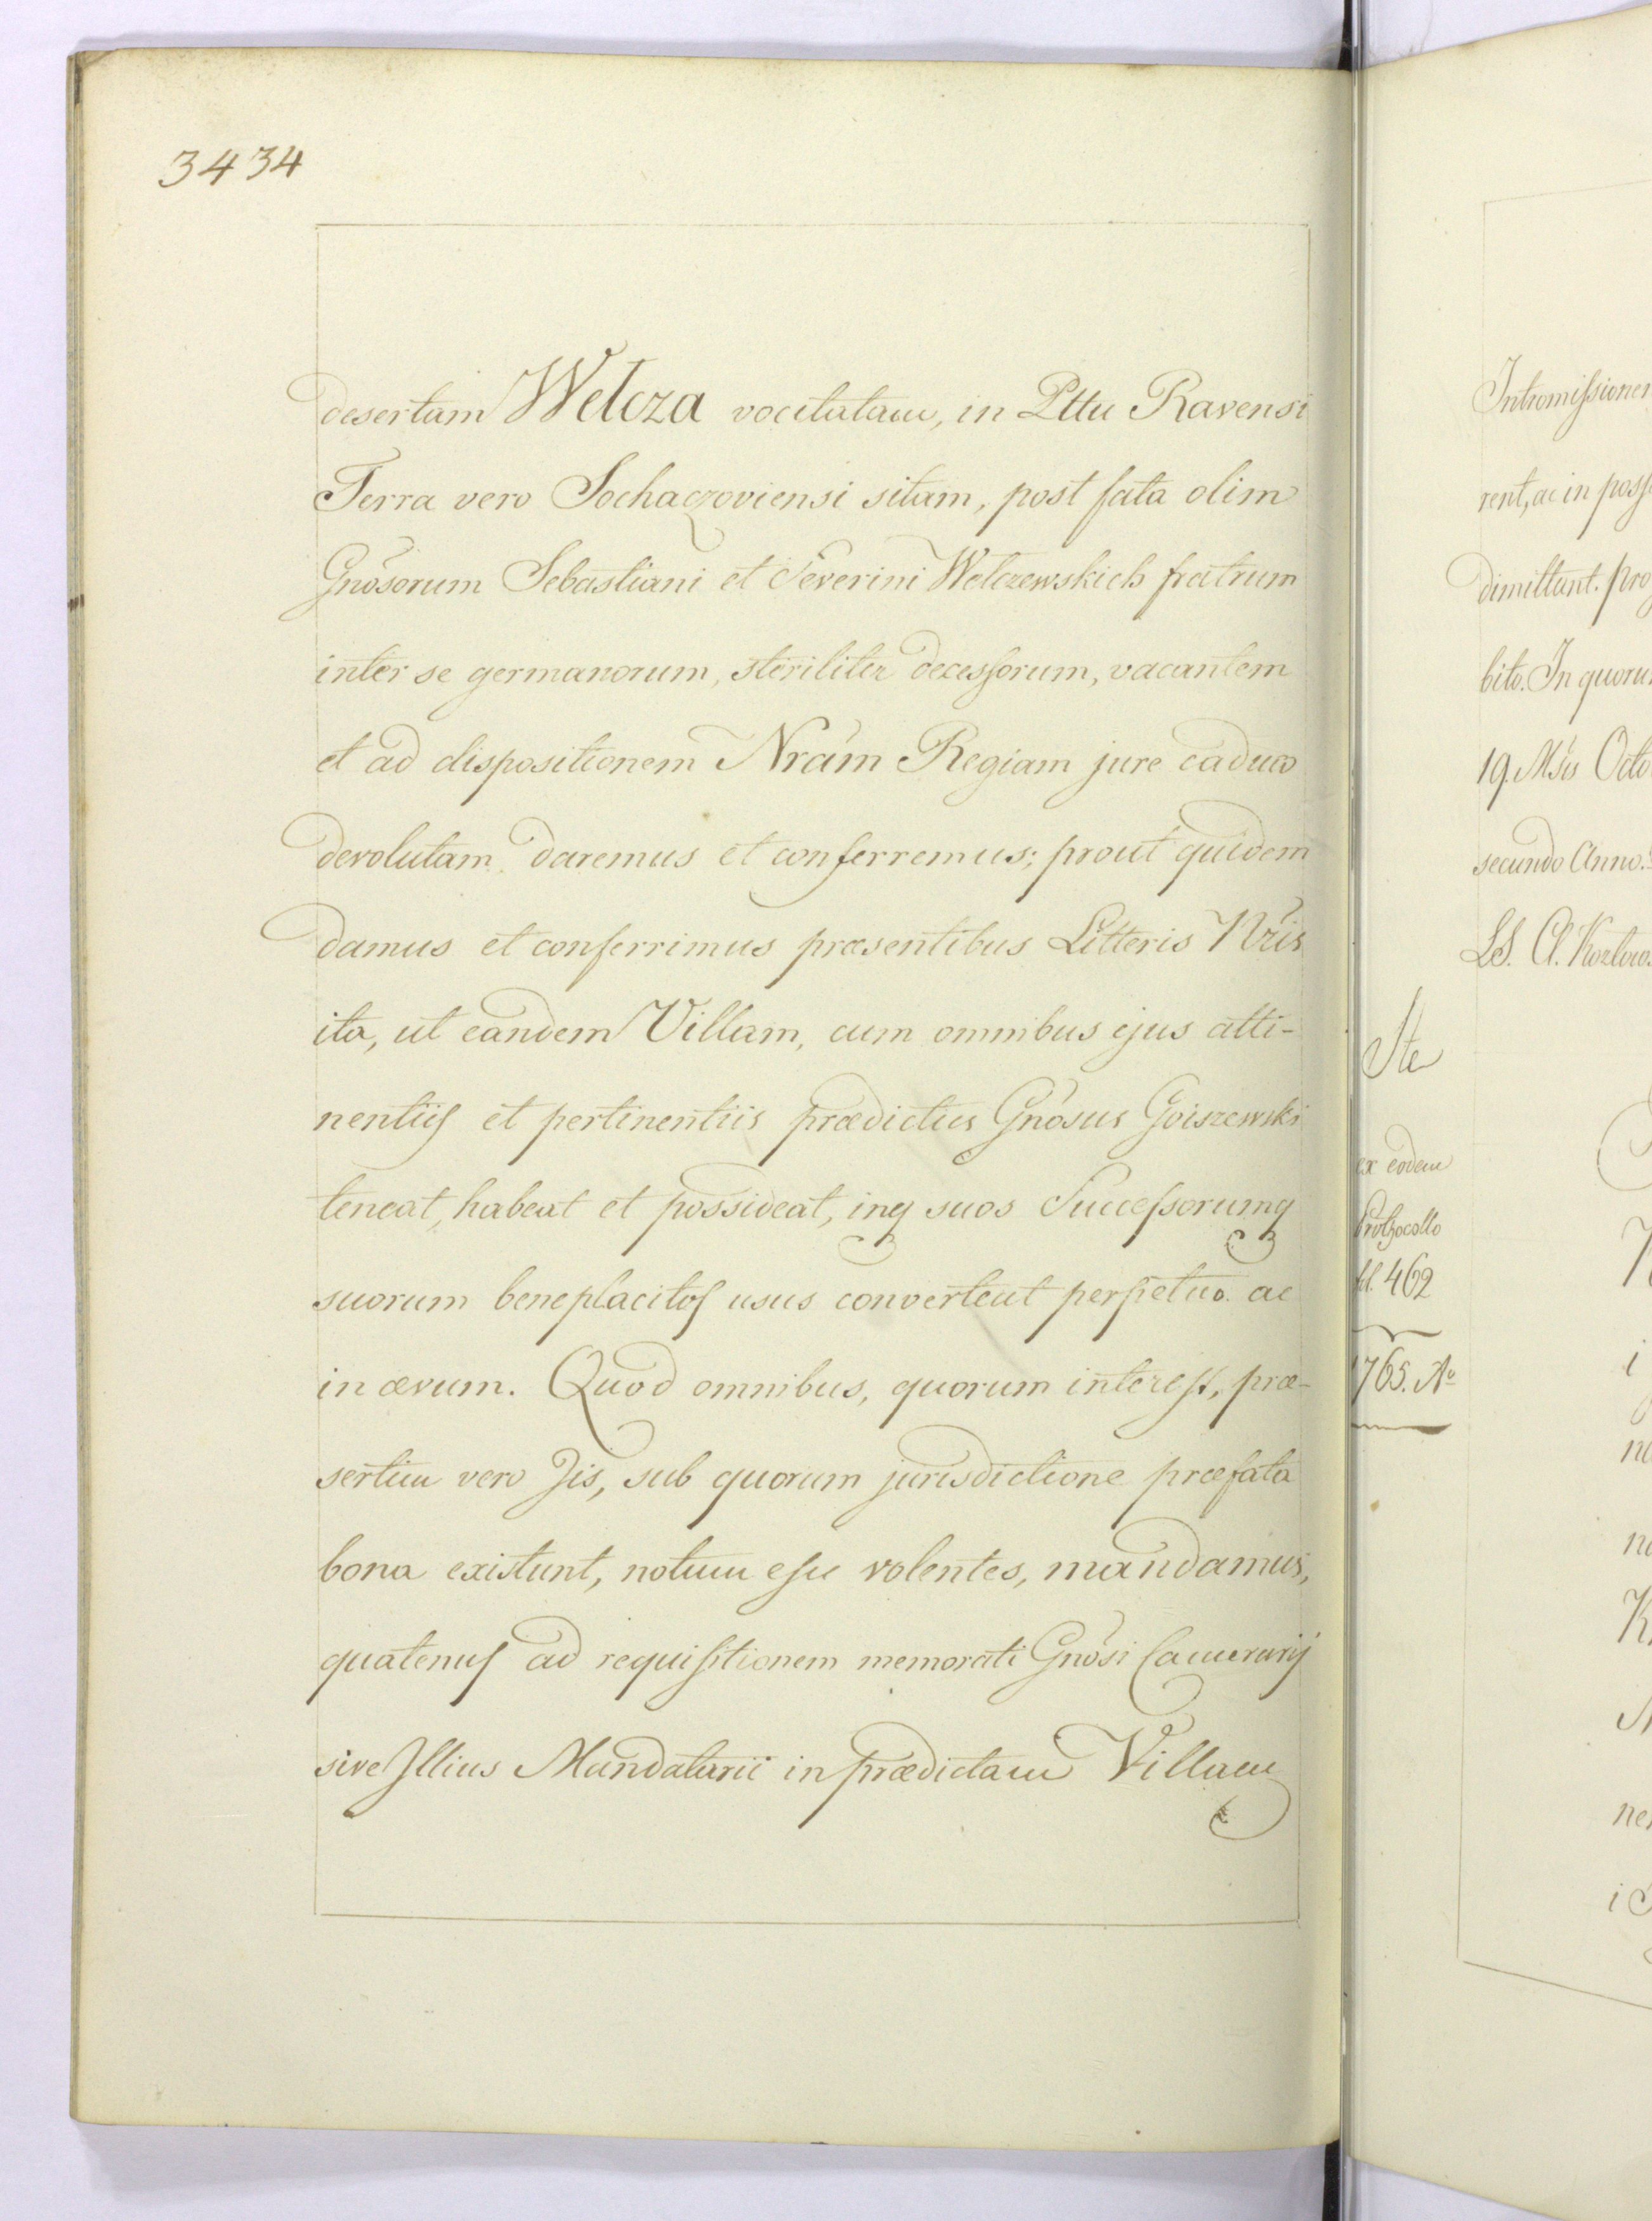 3434
desertam Welcza vocitatam, in Pttu Ravensi
Terra vero Sochaczoviensi sitam, post fata olim
Gnosorum Sebastiani et Severini Welczewskich fratrum
inter se germanorum, steriliter decessorum, vacantem
et ad dispositionem Nram Regiam jure caduco
devolutam daremus et conferremus; prout quidem
damus et conferrimus præsentibus Litteris Nris
ita, ut eandem Villam, cum omnibus ejus atti-
nentiis et pertinentiis prædictus Gnosus Goiszewski
teneat, habeat et possideat, inq suos Successorumq
suorum beneplacitos usus converteat perpetuo ac
in ævum. Quod omnibus, quorum interest, præ-
sertim vero Jis, sub quorum jurisdictione præfata
bona existunt, notum esse volentes, mandamus,
quatenus ad requisitionem memorati Gnosi Camerarij
sive Illius Mandatarii in prædictam Villam
Intromissionem
rent, ac in poss
dimittant. pro
bito. In quorum
19. Msis Octo
secundo Anno.
LS. A. Kozlow
Ste
ex eodem
Prothocollo
fol. 462
1765. Ao